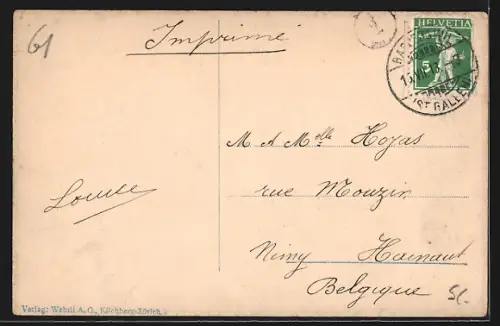 61
Imprimé
HELVETIA
5
(ST. GALLEN)
M A Melle Hoyas
rue Mouzin
Louise
Nimy Hainaut
Belgique
Verlag: Wehrli A.G., Kilchberg-Zürich.